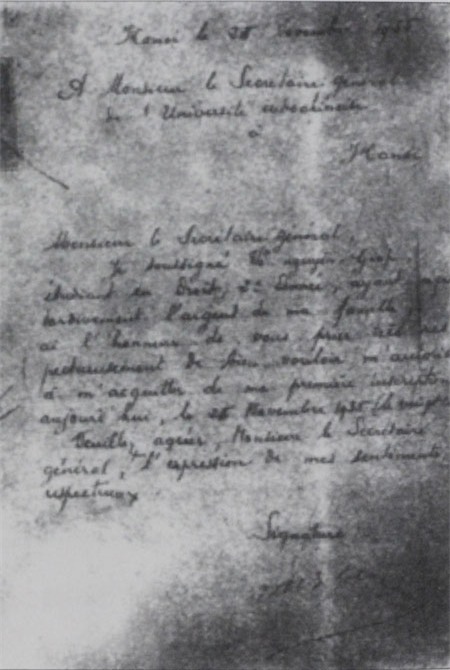 Hanoi le 28 Novembre 1935
A Monsieur le Secrétaire général
de l'Université indochinoise
à
Hanoi
Monsieur le Secrétaire général,
Je soussigné Võ nguyên Giap
étudiant en Droit, 2e Année, ayant reçu
tardivement l'argent de ma famille,
ai l'honneur de vous prier très res
pectueusement de bien vouloir m'autoriser
à m'acquitter de ma première inscription
aujourd'hui, le 28 Novembre 1935
Veuillez agréer, Monsieur le Secrétaire
général, l'expression de mes sentiments
respectueux
Signature